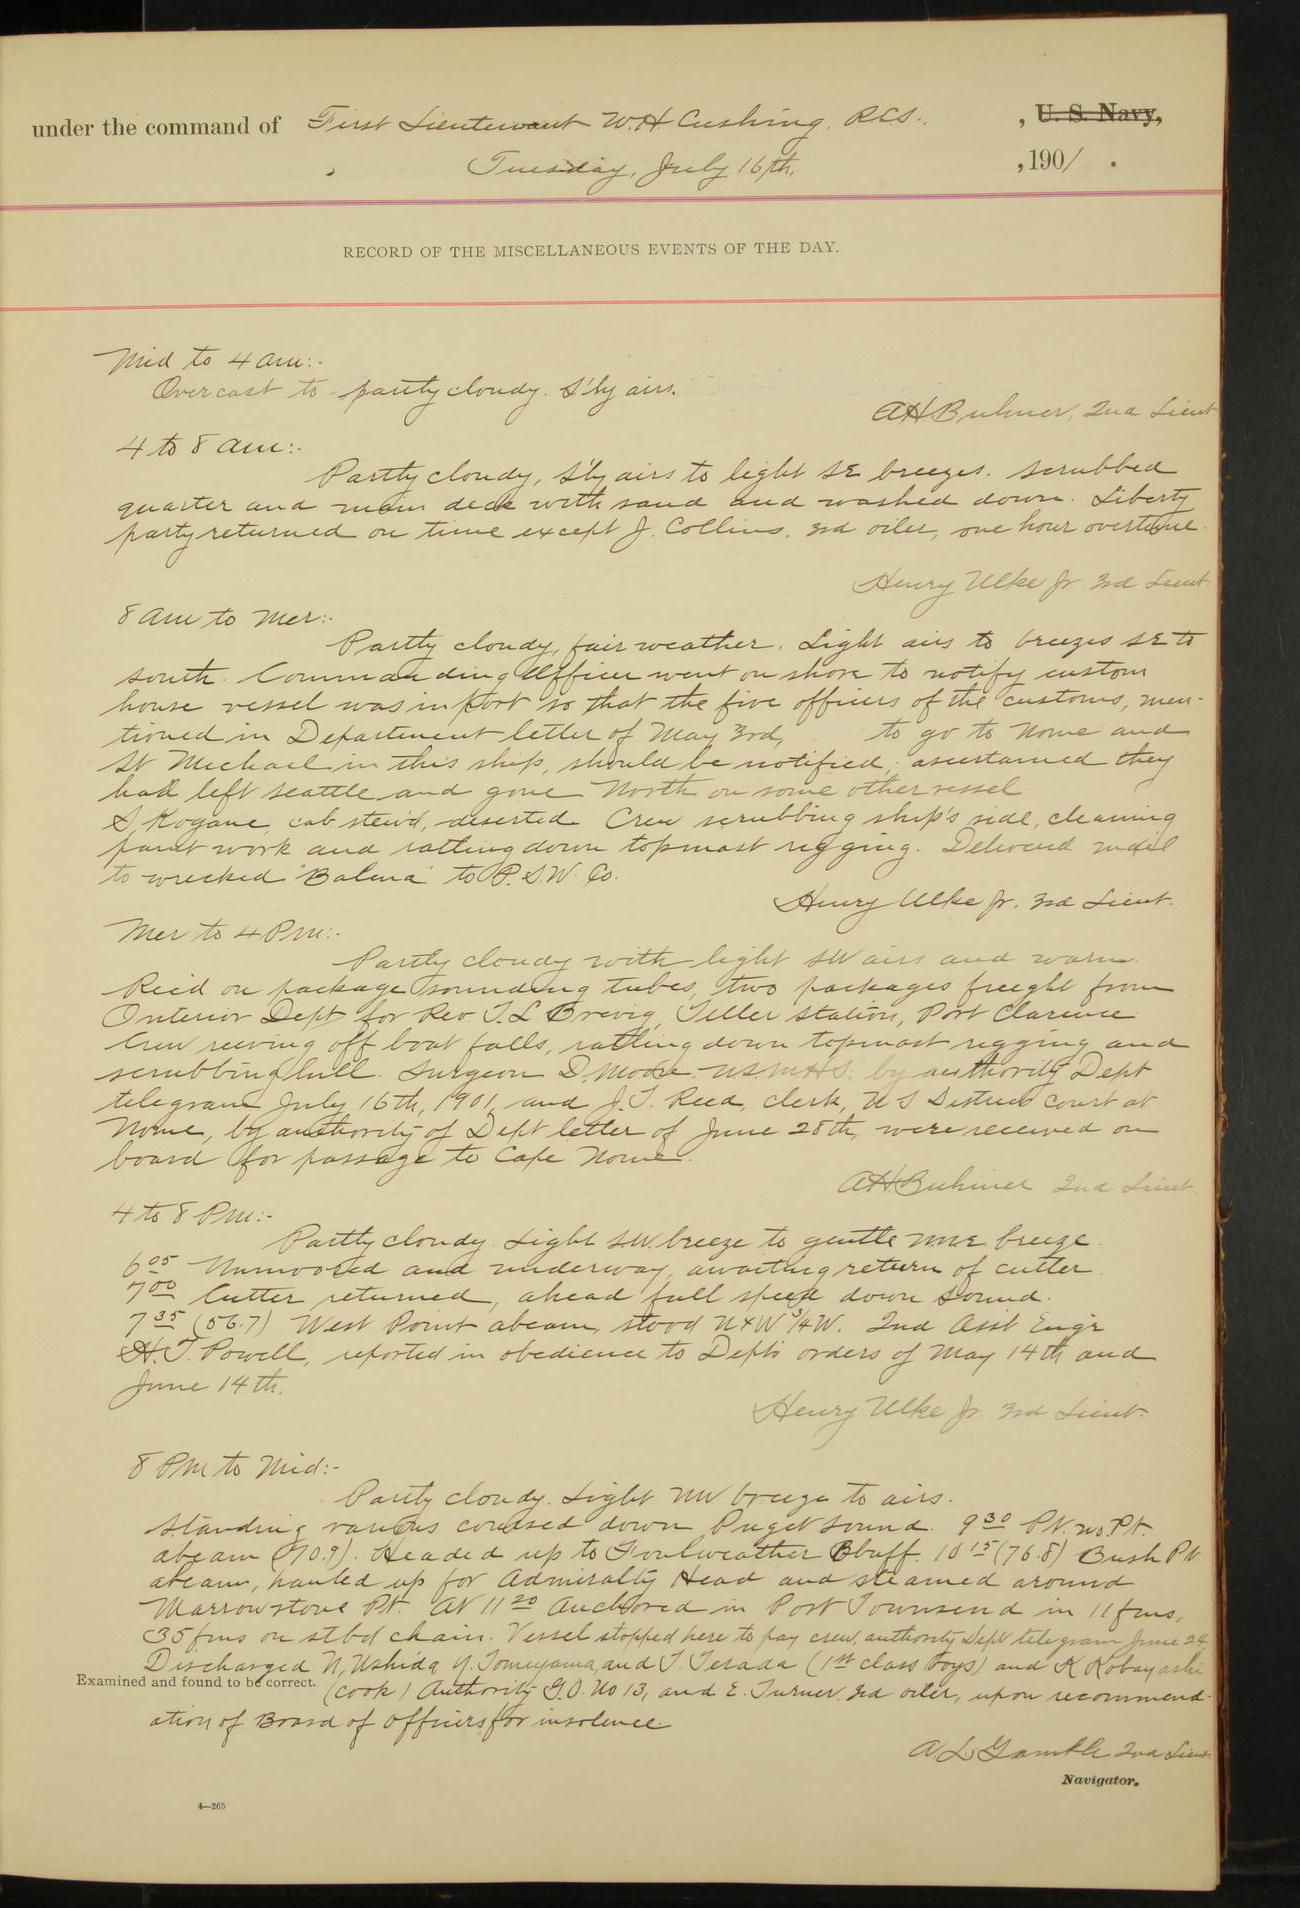 under the command of First Lieutenant W.H. Cushing. R.C.S., , U. S. Navy,
Tuesday, July 16th, , 1901 .
RECORD OF THE MISCELLANEOUS EVENTS OF THE DAY.
Mid to 4 am:-
Overcast to partly cloudy. S'ly airs.
AH Buhner, 2nd Lieut
4 to 8 am:-
Partly cloudy, S'ly airs to light SE breezes. Scrubbed
quarter and main deck with sand and washed down. Liberty
party returned on time except J. Collins, 3rd oiler, one hour overtime.
Henry Ulke Jr 3rd Lieut
8 am to Mer:-
Partly cloudy, fair weather. Light airs to breezes SE to
south. Commanding Officer went on shore to notify custom
house vessel was in port so that the five officers of the customs, men-
tioned in Department letter of May 3rd, to go to Nome and
St Michael in this ship, should be notified; ascertained they
had left Seattle and gone North on some other vessel
S. Kogane, cab. stew'd, deserted. Crew scrubbing ship's side, cleaning
paint work and rattling down topmast rigging. Delivered mail
to wrecked "Balena" to P.S.W. Co.
Henry Ulke Jr. 3rd Lieut.
Mer to 4 PM:-
Partly cloudy with light SW airs and warm.
Rec'd on package sounding tubes, two packages freight from
Interior Dept for Rev T.L Brevig, Teller Station, Port Clarence
Crew reeving off boat falls, rattling down topmast rigging and
scrubbing hull. Surgeon D. Moore U.S.M.H.S. by authority Dept
telegram July 16th, 1901, and J.T. Reed, clerk, U S District court at
Nome, by authority of Dept letter of June 28th, were received on
board for passage to Cape Nome.
AH Buhner 2nd Lieut.
4 to 8 PM:-
Partly cloudy. Light SW. breeze to gentle NNE breeze.
6 05 Unmoored and underway, awaiting return of cutter.
7 00 Cutter returned, ahead full speed down Sound.
7 35 (56.7) West Point abeam, stood NxW 3/4 W. 2nd Asst Engr
H.T. Powell, reported in obedience to Dept's orders of May 14th and
June 14th.
Henry Ulke Jr. 3rd Lieut.
8 PM to Mid:-
Partly cloudy. Light NW breeze to airs.
Standing various coursed down Puget Sound. 9 30 Pt. no Pt.
abeam (70.9). Headed up to Foulweather Bluff. 10 15 (76.8) Bush Pt
abeam, hauled up for Admiralty Head and steamed around
Marrowstone Pt. At 11 20 Anchored in Port Townsend in 11 fms,
35 fms on stbd chain. Vessel stopped here to pay crew, authority Dept telegram June 24.
Discharged N, Ushida Y. Tomiyama, and T. Terada (1st class boys) and K Kobayashi
Examined and found to be correct. (cook) Authority G.O. No 13, and E. Turner, 3rd oiler, upon recommend-
ation of Board of officers for insolence
A L Gamble 2nd Lieut.
Navigator.
4—265